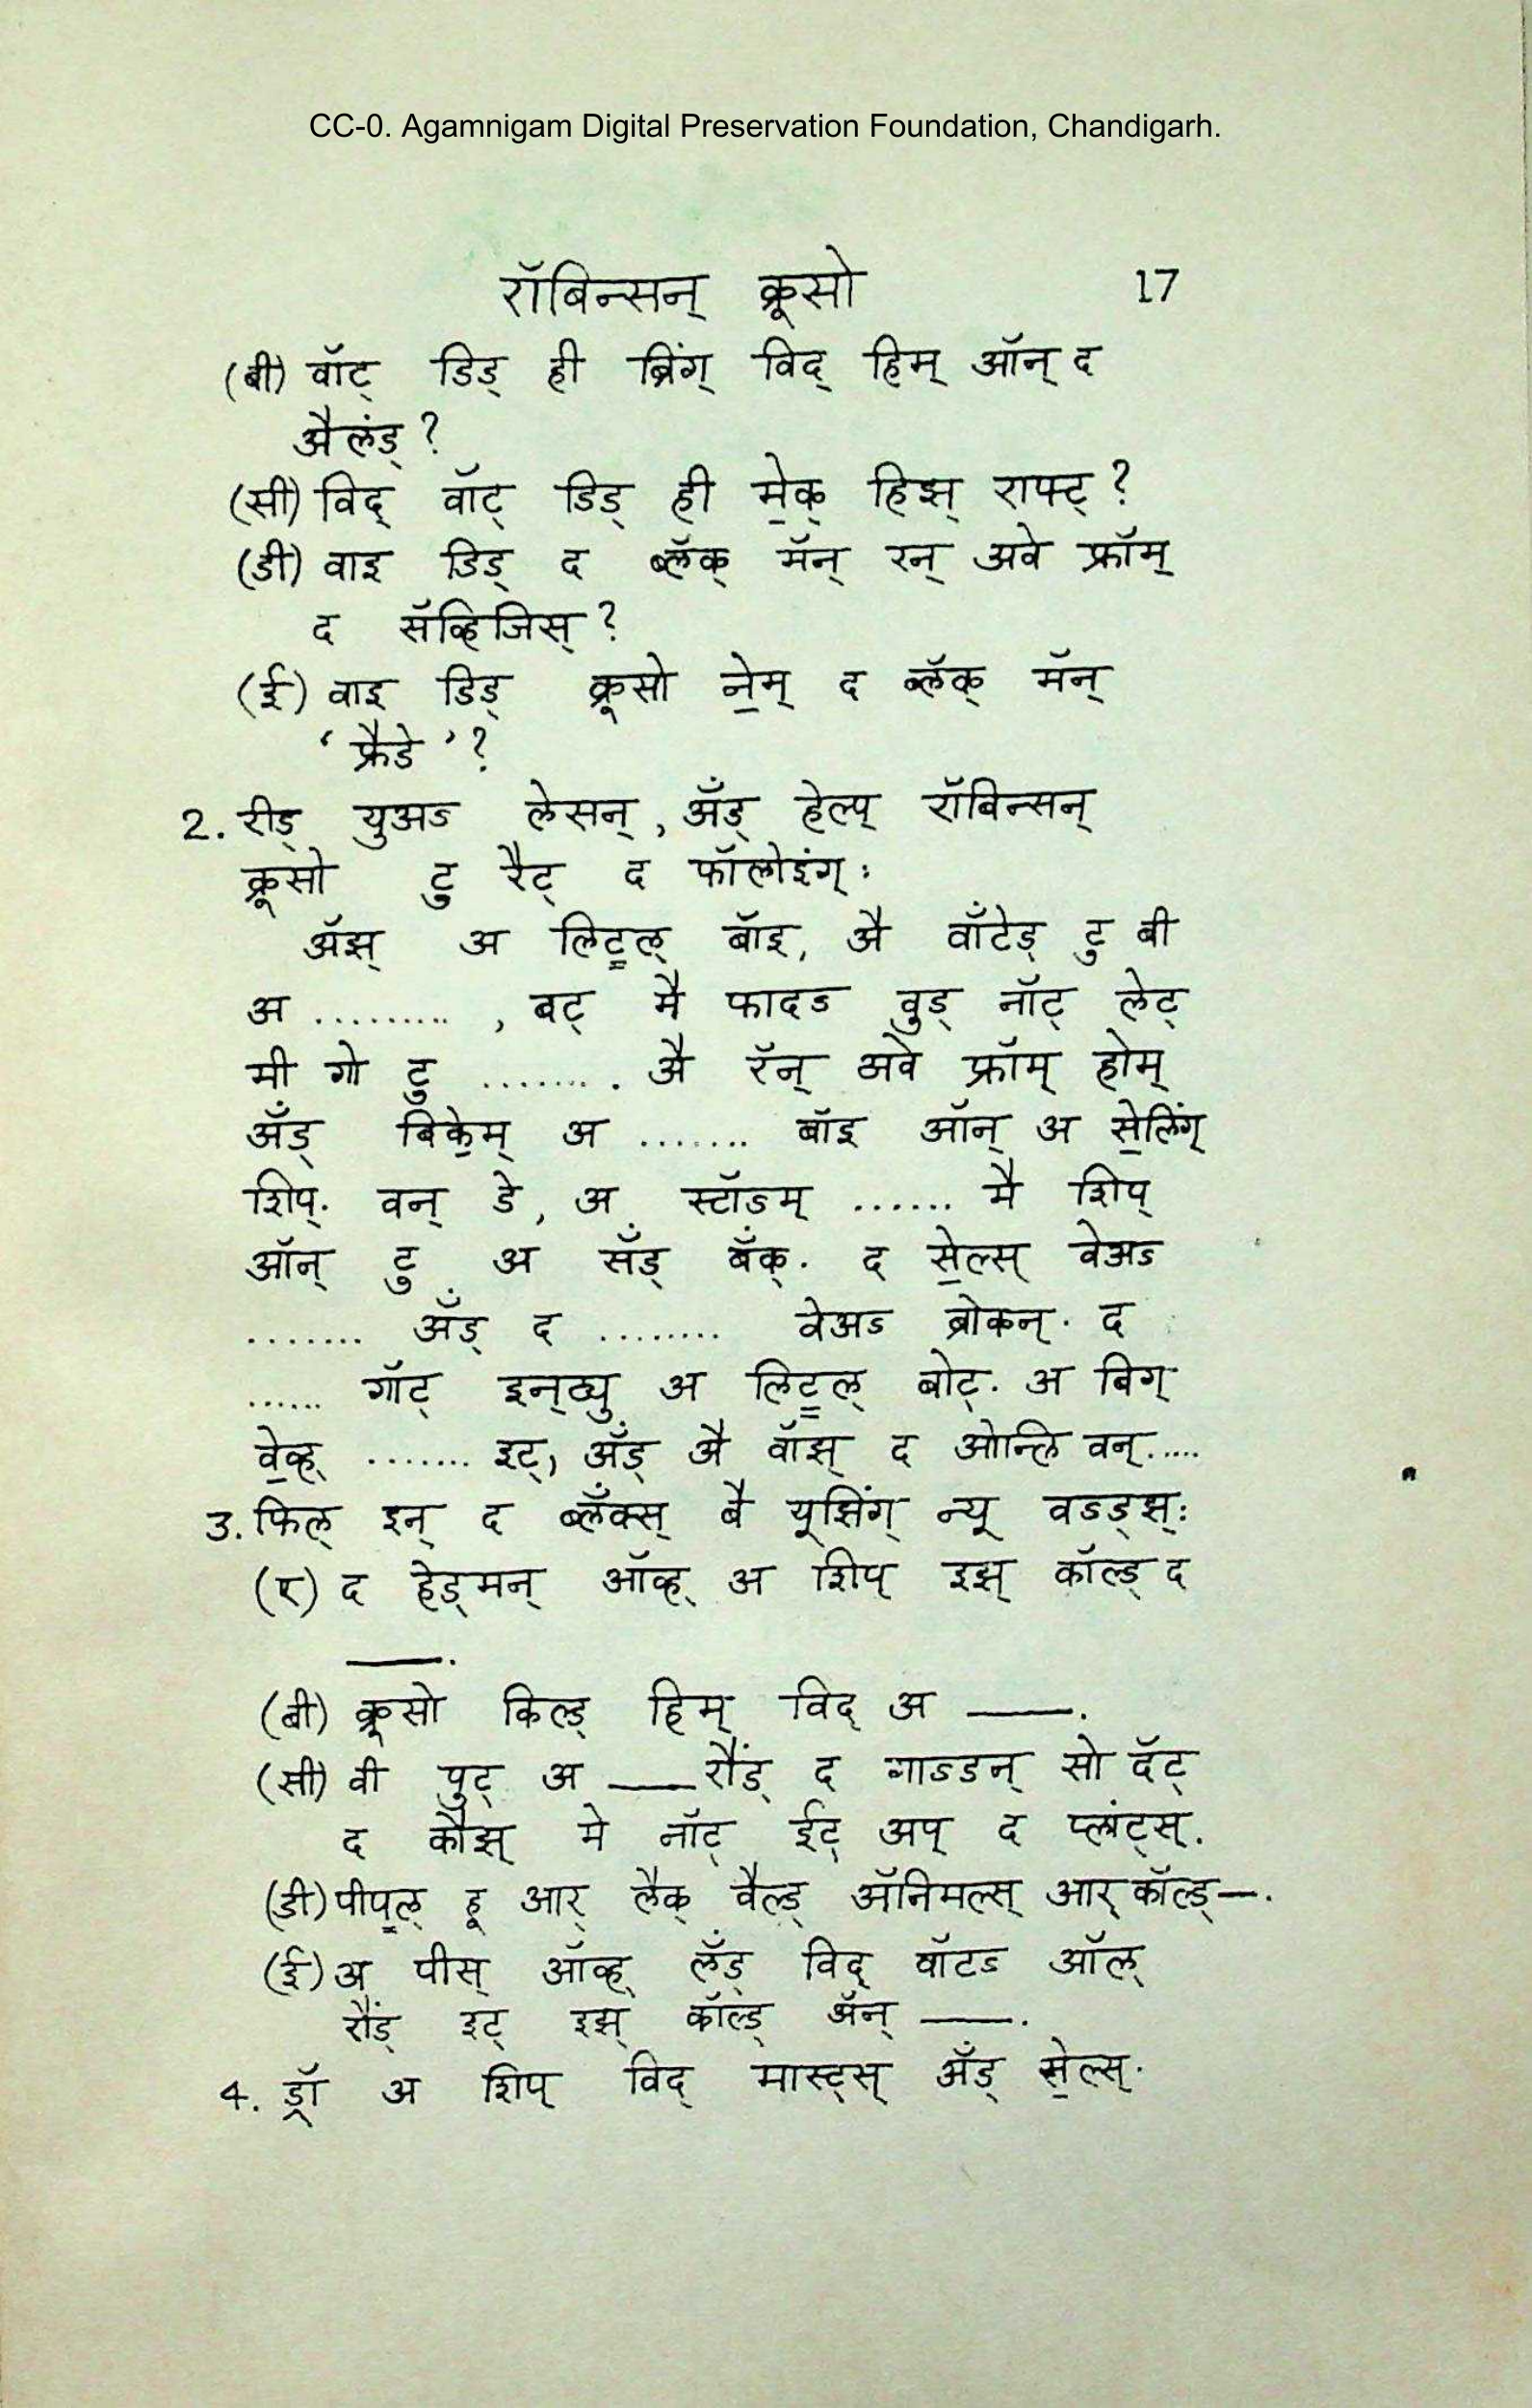 CC-0. Agamnigam Digital Preservation Foundation, Chandigarh.
रॉबिन्सन् क्रूसो 17
(बी) वॉट् डिड् ही ब्रिंग् विद् हिम् ऑन् द
अैलंड् ?
(सी) विद् वॉट् डिड् ही मे॒क् हिझ् राफ्ट् ?
(डी) वाइ डिड् द ब्लॅक् मॅन् रन् अवे फ्रॉम्
द सॅव्हिजिस् ?
(ई) वाइ डिड् क्रूसो ने॒म् द ब्लॅक् मॅन्
‘ फ्रैडे ’ ?
2. रीड् युअऽ लेसन् , अँड् हेल्प् रॉबिन्सन्
क्रूसो टु रैट् द फॉलोइंग् :
अॅझ् अ लिट्ल् बॉइ, अै वाँटेड् टु बी
अ ......... , बट् मै फादऽ वुड् नॉट् लेट्
मी गो टु ........ . अै रॅन् अवे फ्रॉम् होम्
अँड् बिके॒म् अ ....... बॉइ ऑन् अ से॒लिंग्
शिप्. वन् डे , अ स्टॉऽम् ...... मै शिप्
ऑन् टु अ सँड् बँक्. द से॒ल्स् वेअऽ
....... अँड् द ........ वेअऽ ब्रोकन्. द
...... गॉट् इन्ट्यु अ लिट्ल् बोट्. अ बिग्
वे॒व्ह् ....... इट्, अँड् अै वॉझ् द ओन्लि वन्.....
3. फिल् इन् द ब्लँक्स् बै यूझिंग् न्यू वऽड्झ् :
(ए) द हेड्मन् ऑव्ह् अ शिप् इझ् कॉल्ड् द
——.
(बी) क्रूसो किल्ड् हिम् विद् अ ——.
(सी) वी पुट् अ —— रौंड् द गाऽडन् सो दॅट्
द कौझ् मे नॉट् ईट् अप् द प्लांट्स्.
(डी) पीप्ल् हू आर् लैक् वैल्ड् अॅनिमल्स् आर् कॉल्ड् —.
(ई) अ पीस् ऑव्ह् लँड् विद् वॉटऽ ऑल्
रौंड् इट् इझ् कॉल्ड् अॅन् ——.
4. ड्रॉ अ शिप् विद् मास्ट्स् अँड् से॒ल्स्.